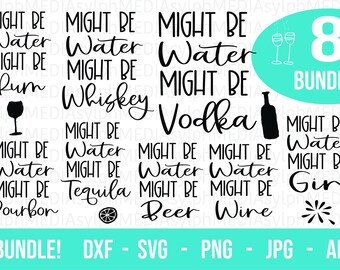 MIGHT BE
Water
MIGHT BE
Rum
MIGHT BE
Water
MIGHT BE
Whiskey
MIGHT BE
Water
MIGHT BE
Vodka
8
BUNDLE
MIGHT BE
Water
MIGHT BE
Bourbon
MIGHT BE
Water
MIGHT BE
Tequila
MIGHT BE
Water
MIGHT BE
Beer
MIGHT BE
Water
MIGHT BE
Wine
MIGHT BE
Water
MIGHT BE
Gin
BUNDLE! DXF - SVG - PNG - JPG - A